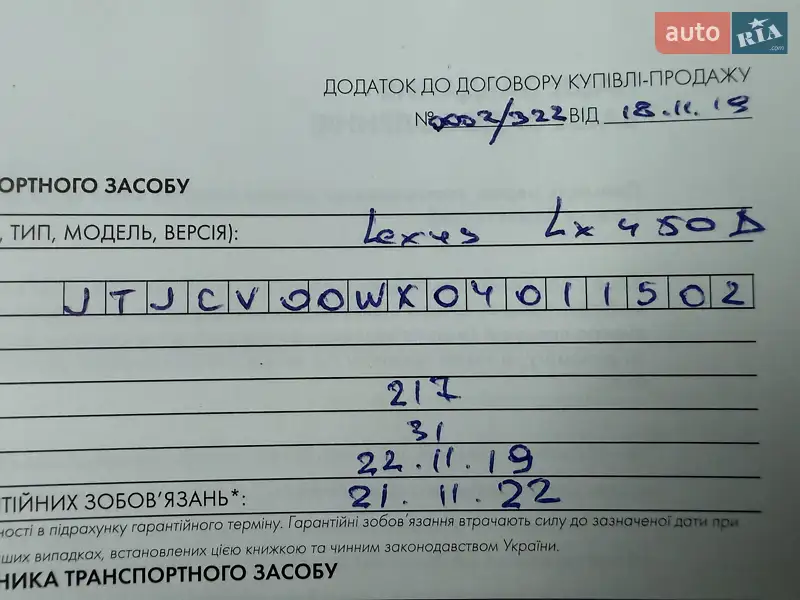 auto RIA .com
ДОДАТОК ДО ДОГОВОРУ КУПІВЛІ-ПРОДАЖУ
№0002/322 ВІД 18.11.19
ОРТНОГО ЗАСОБУ
, ТИП, МОДЕЛЬ, ВЕРСІЯ): Lexus Lx 450D
JTJCV00WX04011502
217
31
22.11.19
ТІЙНИХ ЗОБОВ'ЯЗАНЬ*: 21.11.22
ності в підрахунку гарантійного терміну. Гарантійні зобов'язання втрачають силу до зазначеної дати при
ших випадках, встановлених цією книжкою та чинним законодавством України.
НИКА ТРАНСПОРТНОГО ЗАСОБУ